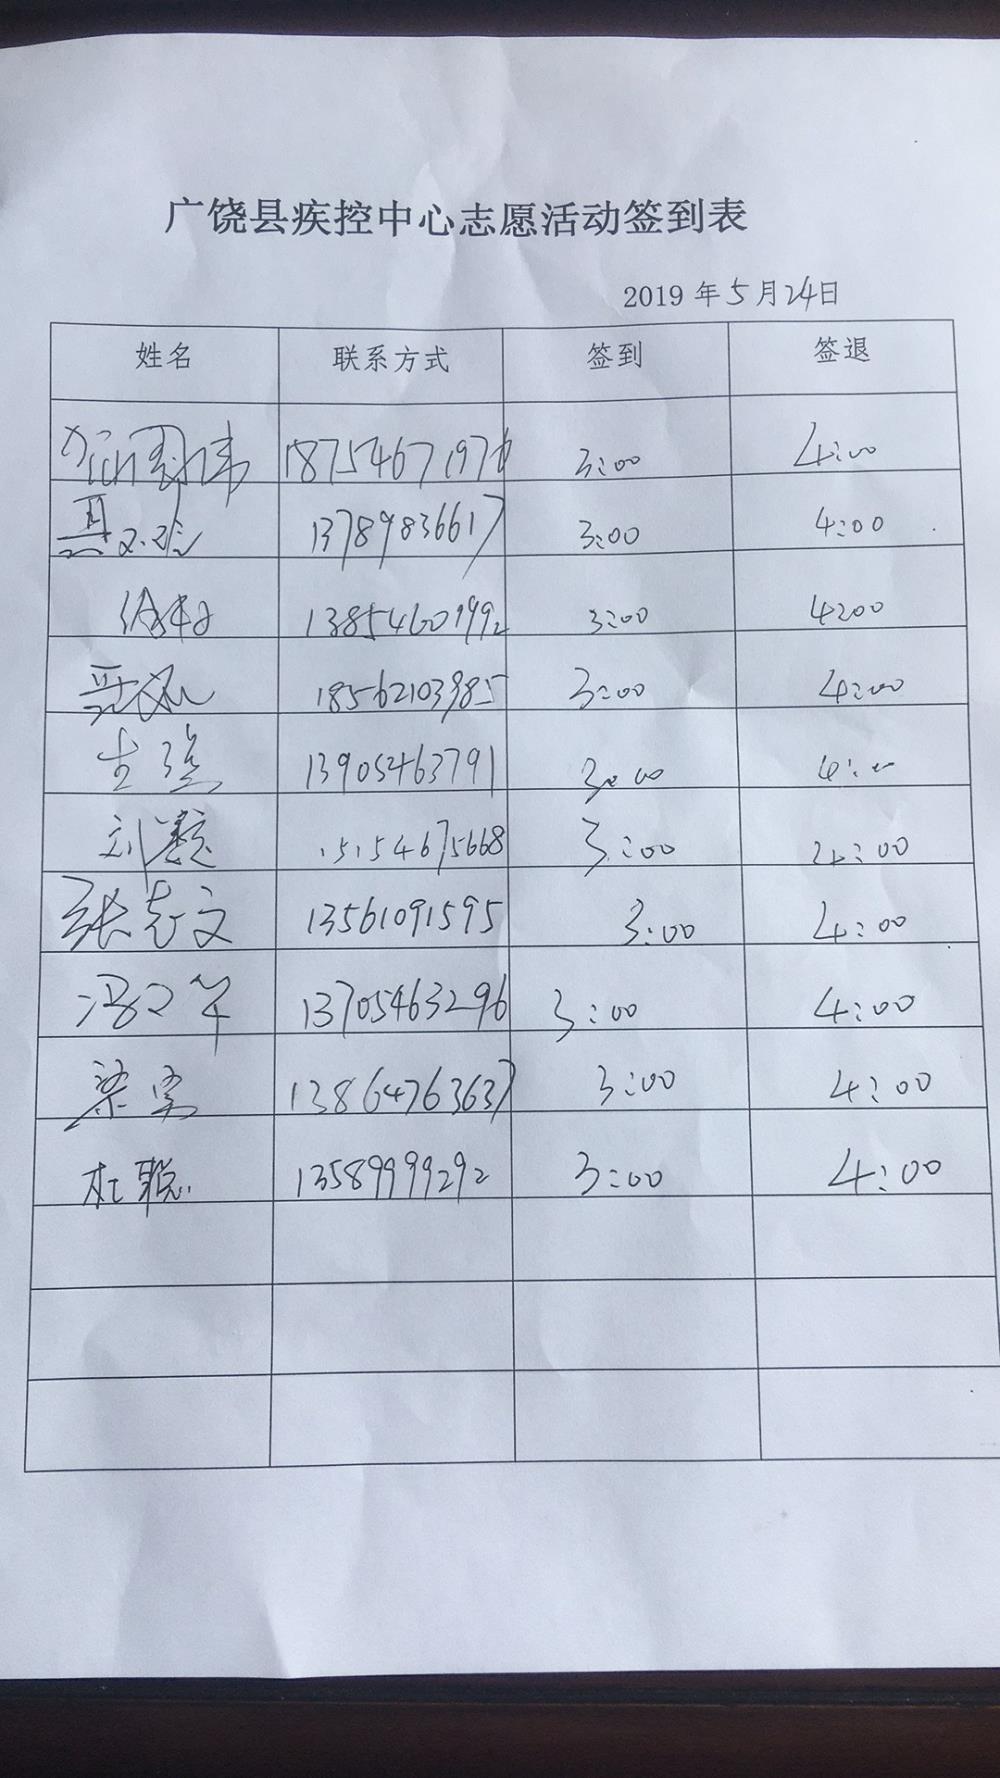 广饶县疾控中心志愿活动签到表
2019年5月24日
姓名 联系方式 签到 签退
1875467197 3:00 4:00
13789836617 3:00 4:00
13854601992 3:00 4:00
18562103985 3:00 4:00
13905463791 3:00 4:00
刘慧 15154675668 3:00 4:00
张志文 13561091595 3:00 4:00
冯 13705463296 3:00 4:00
梁实 13864763637 3:00 4:00
杜聪 13589999292 3:00 4:00